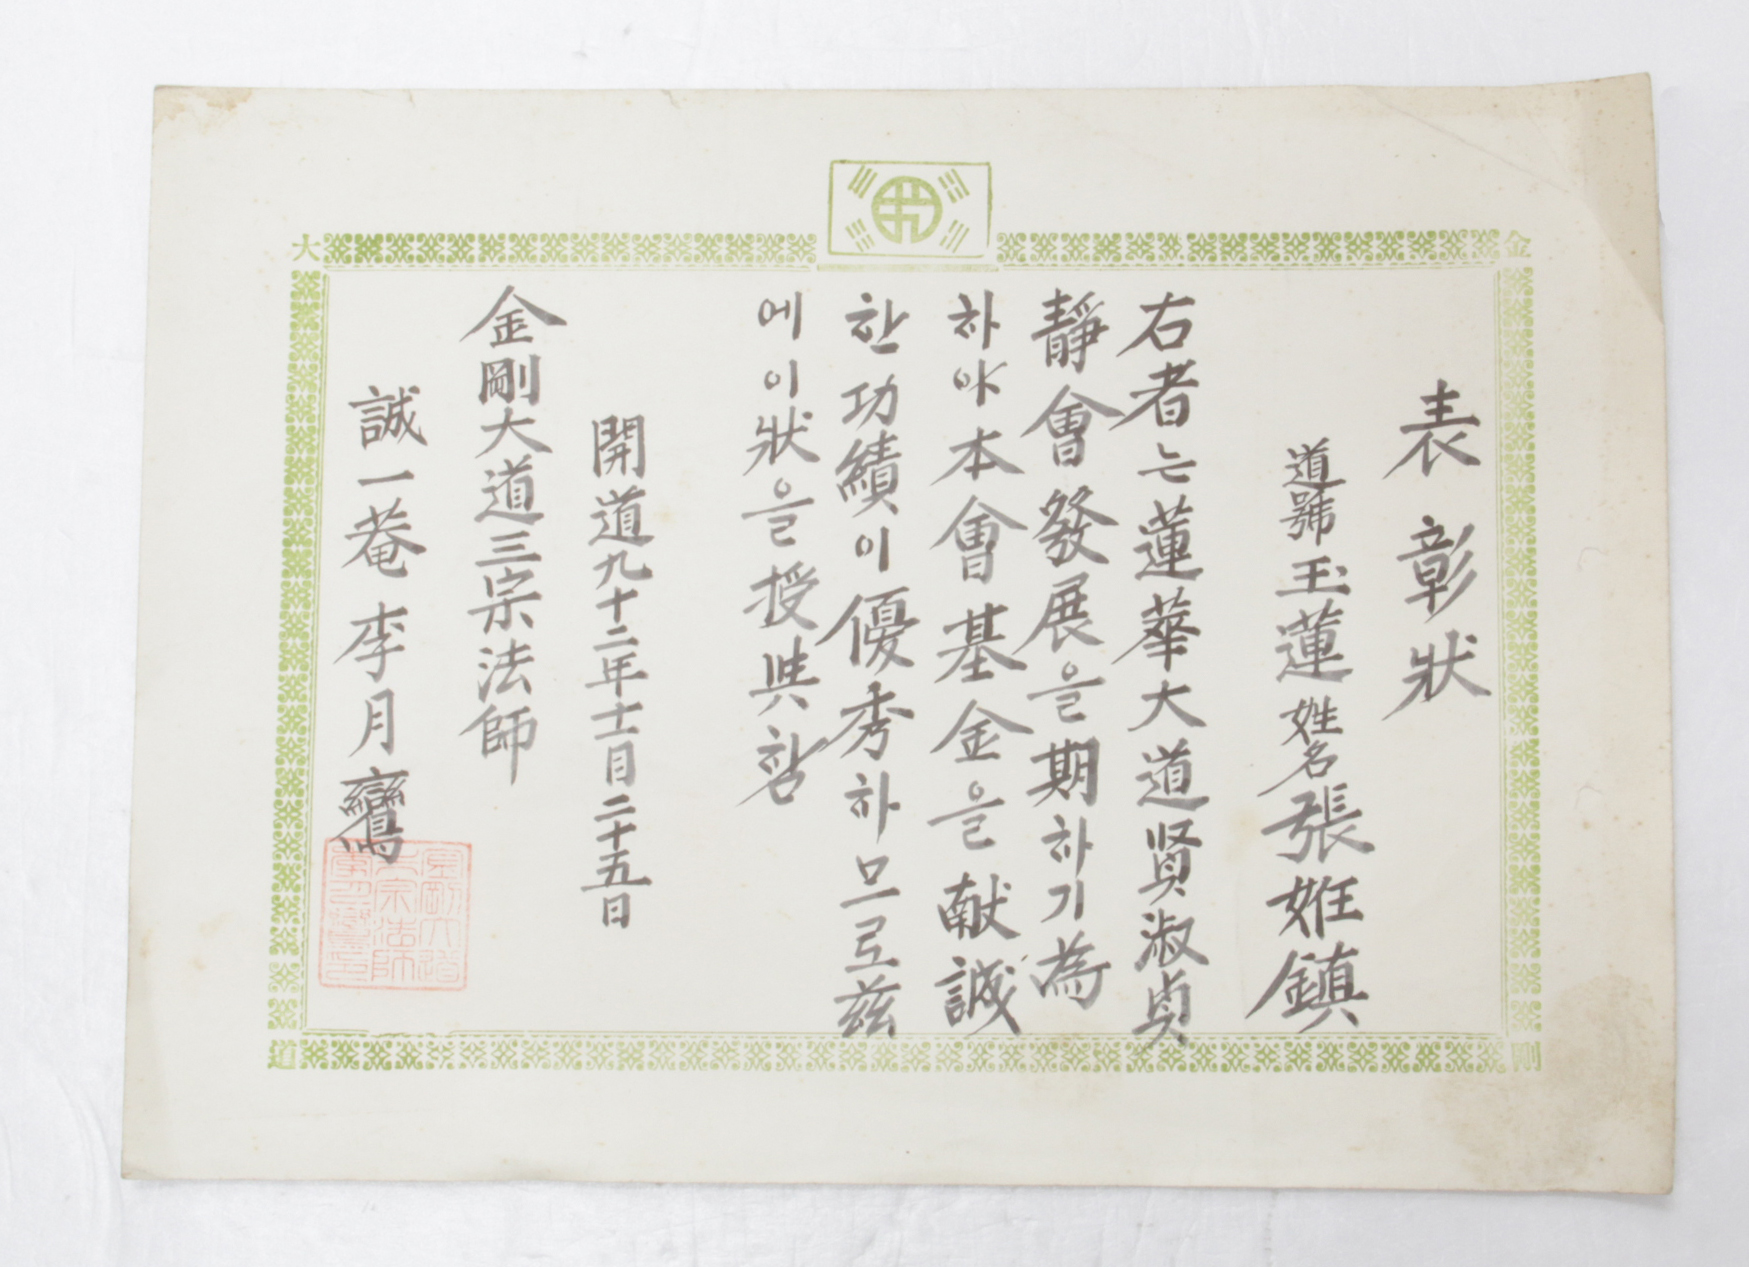 表彰狀
道號 玉蓮 姓名 張姙鎮
右者는蓮華大道賢淑貞
靜會發展을期하기為
하야本會基金을献誠
한功績이優秀하므로茲
에이狀을授與함
開道九十二年十一月二十五日
金剛大道三宗法師
誠一菴 李月鸞
金剛大道